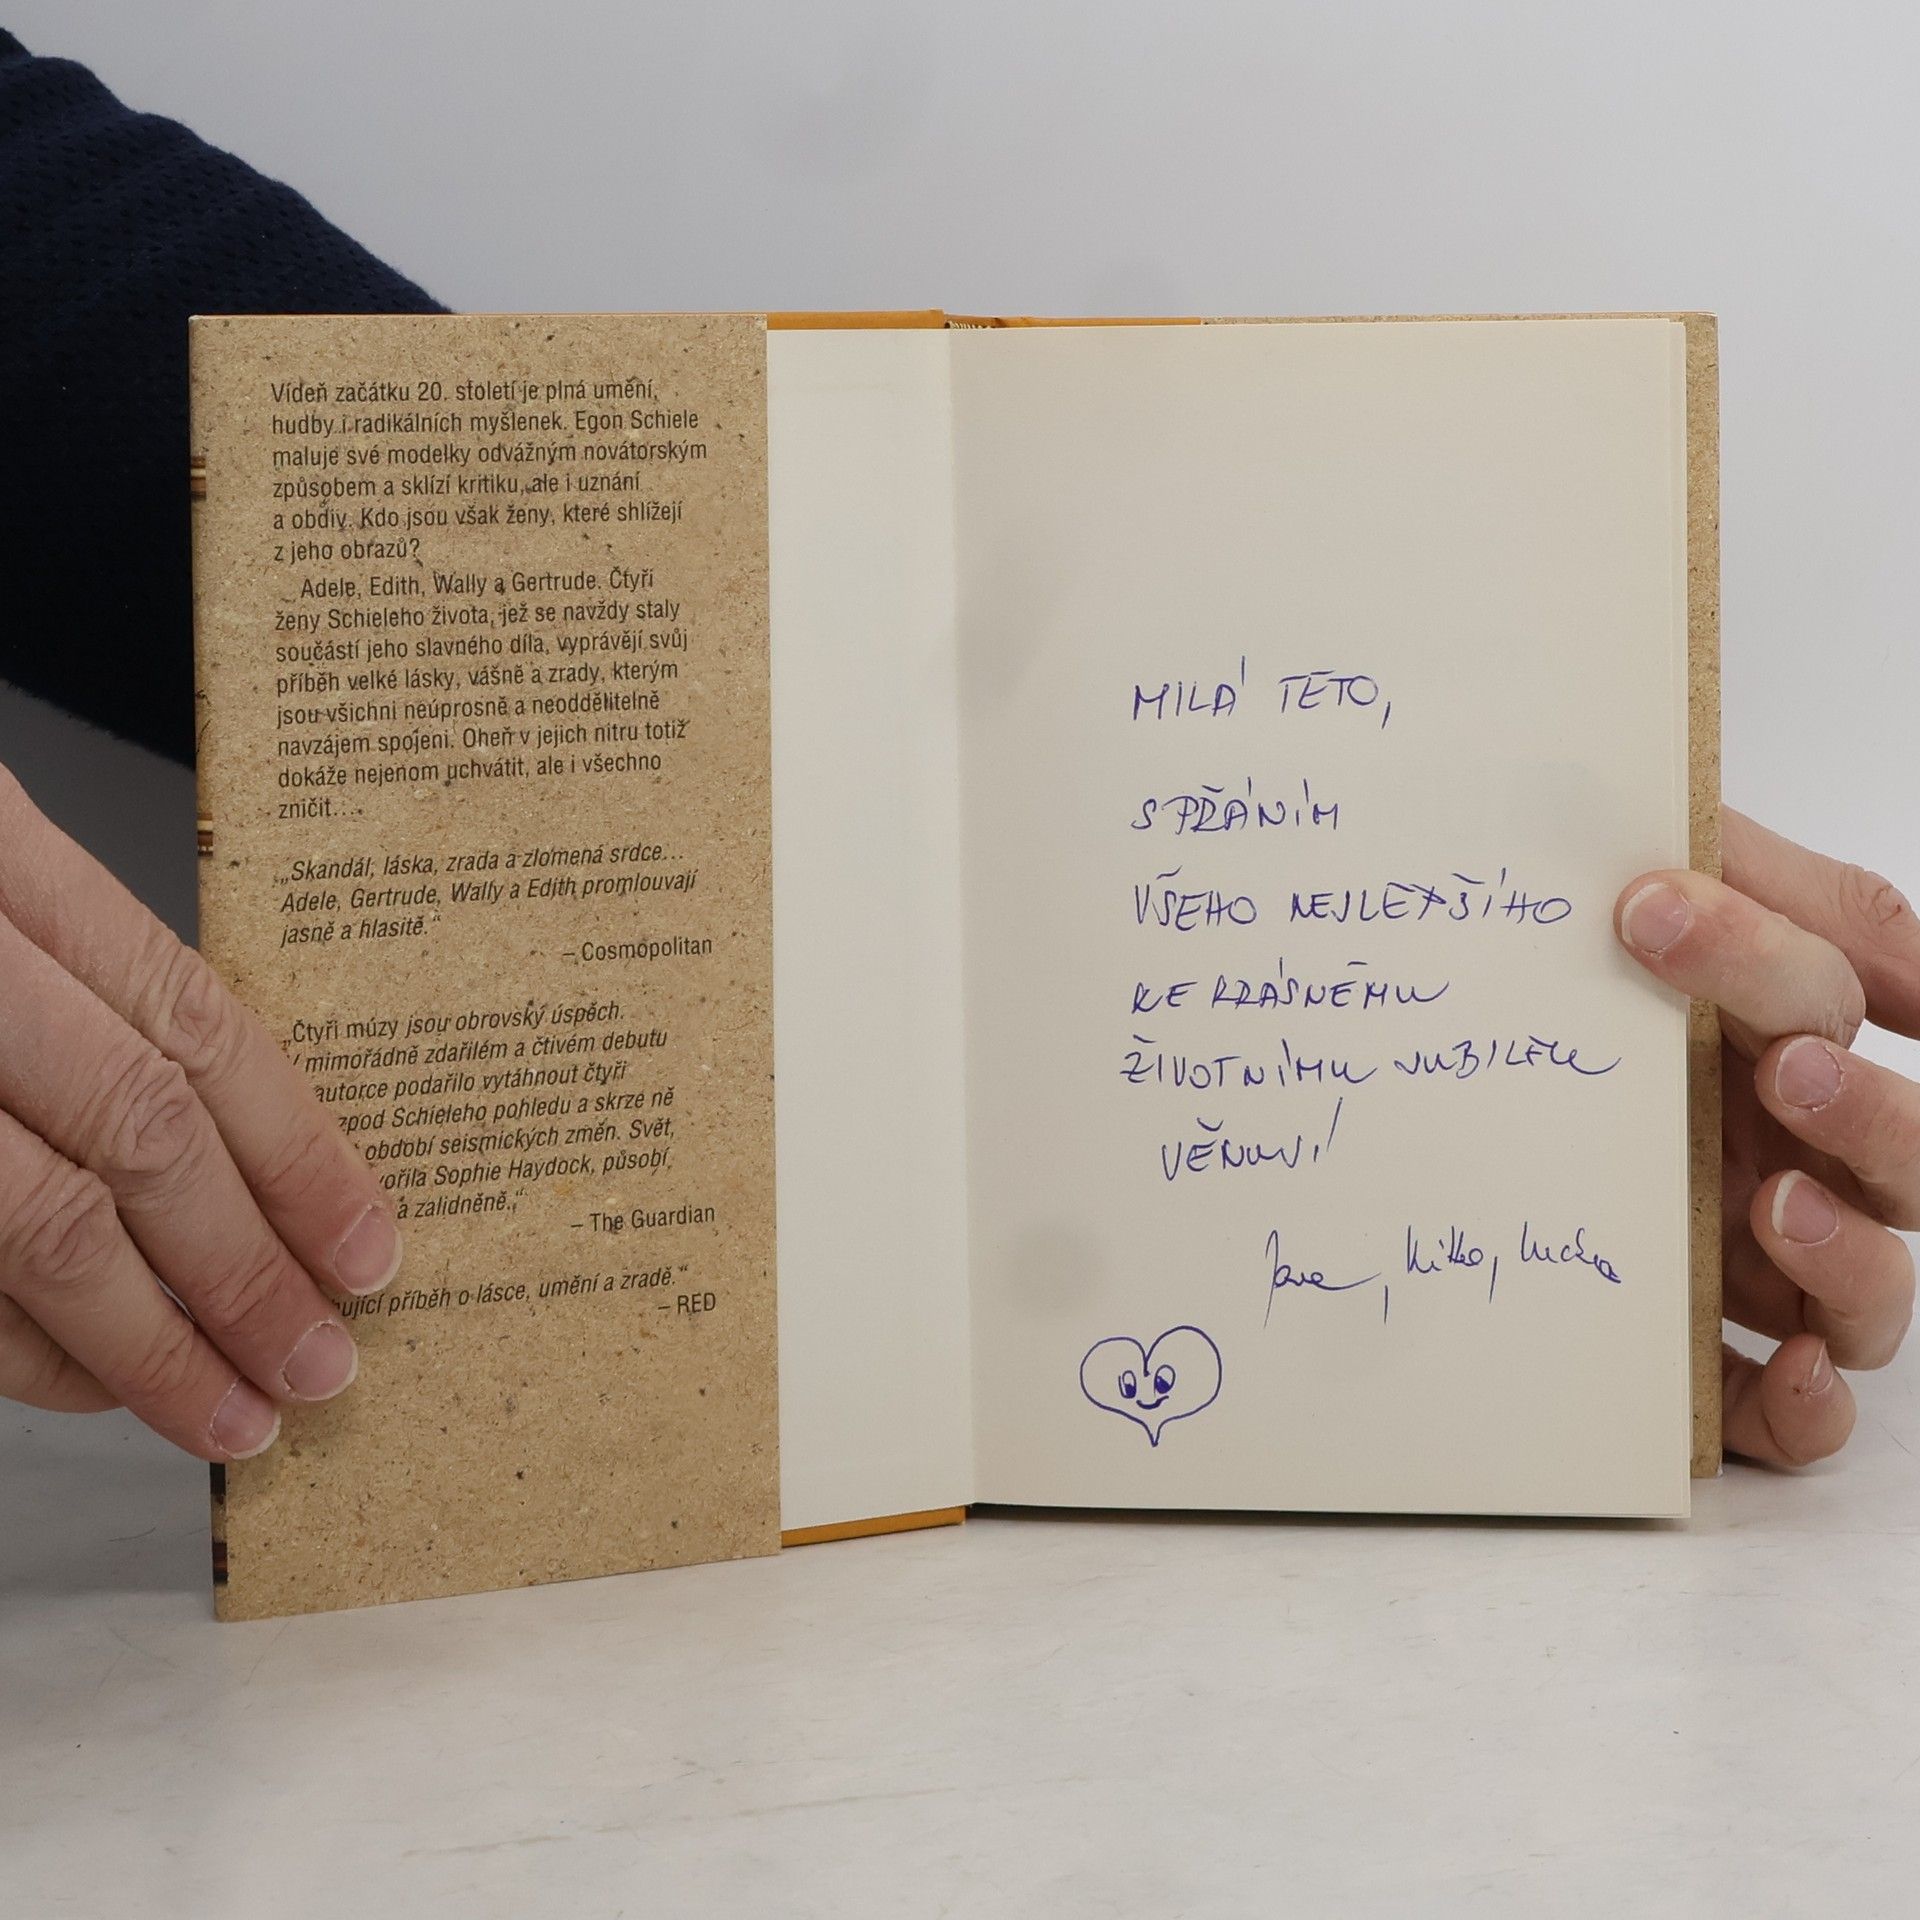 Vídeň začátku 20. století je plná umění,
hudby i radikálních myšlenek. Egon Schiele
maluje své modelky odvážným novátorským
způsobem a sklízí kritiku, ale i uznání
a obdiv. Kdo jsou však ženy, které shlížejí
z jeho obrazů?
Adele, Edith, Wally a Gertrude. Čtyři
ženy Schieleho života, jež se navždy staly
součástí jeho slavného díla, vyprávějí svůj
příběh velké lásky, vášně a zrady, kterým
jsou všichni neúprosně a neoddělitelně
navzájem spojeni. Oheň v jejich nitru totiž
dokáže nejenom uchvátit, ale i všechno
zničit…
„Skandál, láska, zrada a zlomená srdce…
Adele, Gertrude, Wally a Edith promlouvají
jasně a hlasitě.“
– Cosmopolitan
„Čtyři múzy jsou obrovský úspěch.
V mimořádně zdařilém a čtivém debutu
autorce podařilo vytáhnout čtyři
zpod Schieleho pohledu a skrze ně
období seismických změn. Svět,
vořila Sophie Haydock, působí
a zalidněně.“
– The Guardian
hující příběh o lásce, umění a zradě.“
– RED
MILÁ TETO,
S PŘÁNÍM
VŠEHO NEJLEPŠÍHO
KE KRÁSNÉMU
ŽIVOTNÍMU JUBILEU
VĚNUJÍ
Jana,